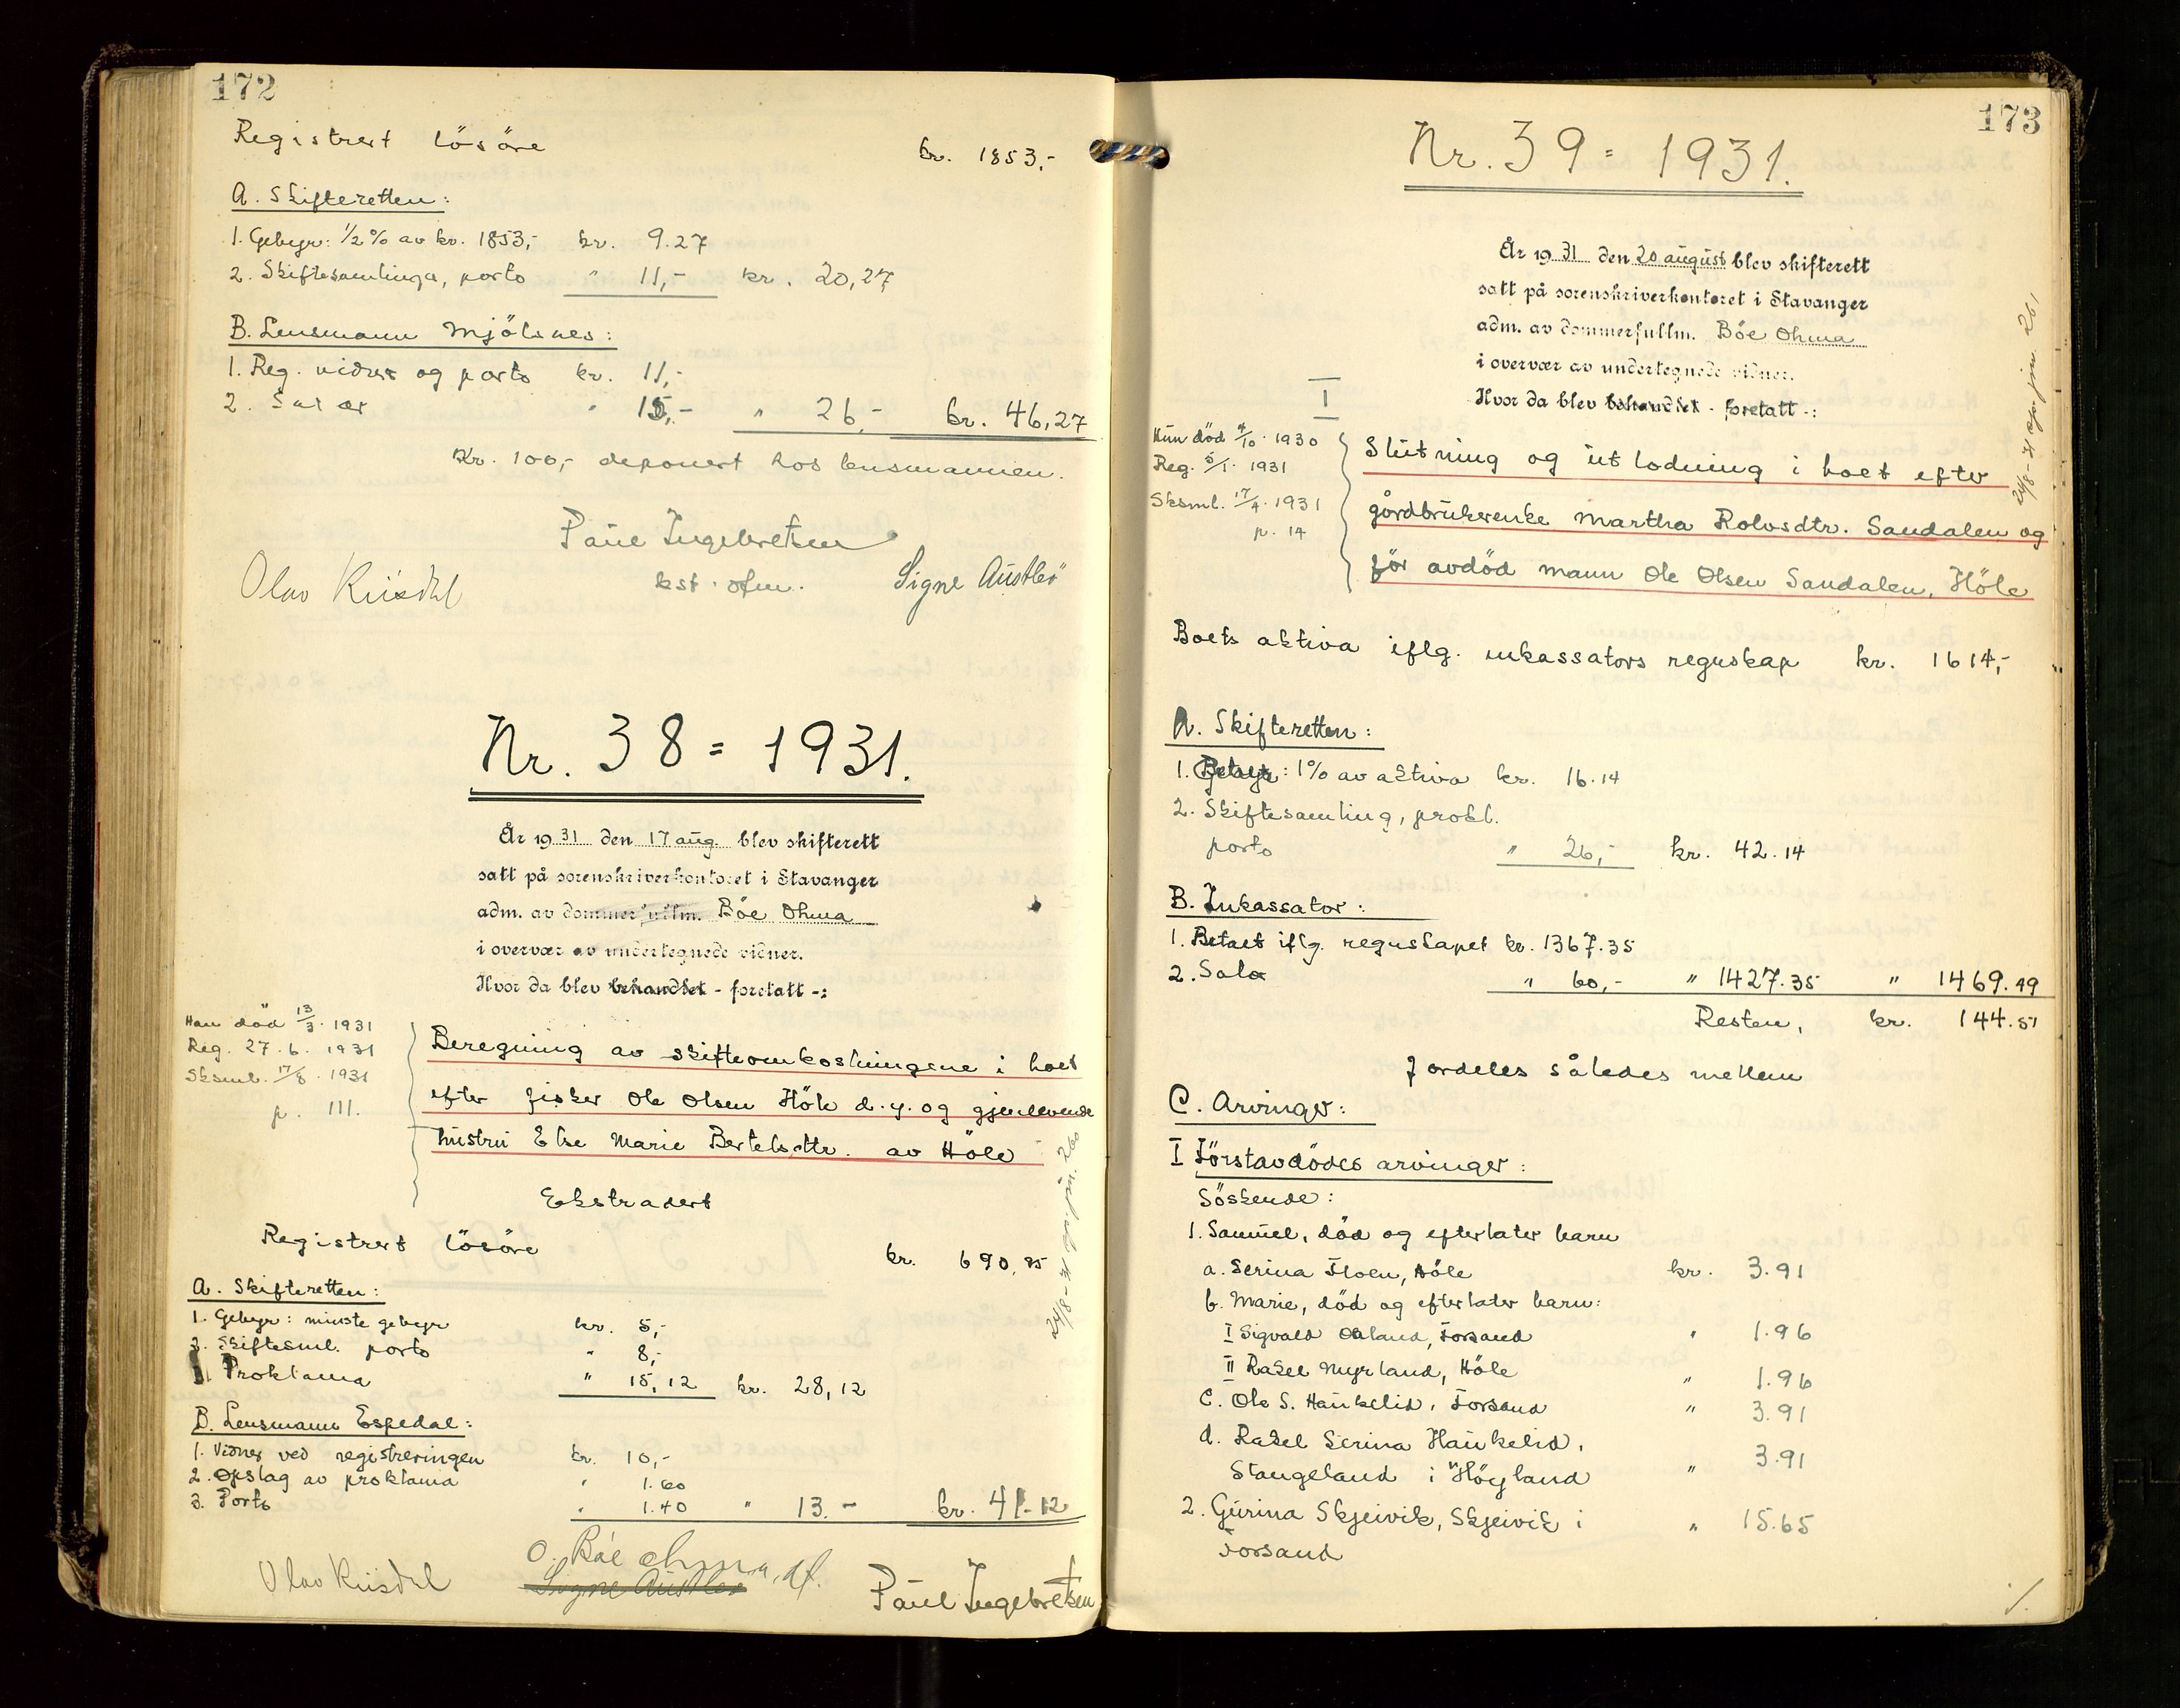 172
Registrert lösöre kr. 1853,-
A. Skifteretten:
1. Gebyr: 1/2 % av kr. 1853,- kr. 9.27
2. Skiftesamlinga, porto " 11,- kr. 20,27
B. Lensmann Mjölsnes:
1. Reg. vidner og porto kr. 11,-
2. Salær " 15,- " 26,- kr. 46,27
Kr. 100,- deponert hos lensmannen.
Paul Ingebretsen
Olav Kiisdal kst. sfm. Signe Austbö
Nr. 38 = 1931.
År 1931 den 17 aug. blev skifterett
satt på sorenskriverkontoret i Stavanger
adm. av dommerfullm. Böe Ohma
i overvær av undertegnede vidner.
Hvor da blev behandlet - foretatt -:
Han död 13/3. 1931
Reg. 27.6. 1931
Sksml. 17/8. 1931
p. 111.
Beregning av skifteomkostningene i boet
efter fisker Ole Olsen Höle d.y. og gjenlevende
hustru Else Marie Bertelsdtr. av Höle
24/8-31 gp. jnr. 260
Ekstradert
Registrert lösöre kr. 690,85
A. Skifteretten:
1. Gebyr: minste gebyr kr. 5,-
2. Skiftesml. porto " 8,-
Proklama " 15,12 kr. 28,12
B. Lensmann Espedal:
1. Vidner ved registreringen kr. 10,-
2. Opslag av proklama " 1.60
3. Porto " 1.40 " 13.- kr. 41.12
O. Böe Ohma, df.
Olav Kiisdal Signe Austbö Paul Ingebretsen
173
Nr. 39 = 1931.
År 1931 den 20 august blev skifterett
satt på sorenskriverkontoret i Stavanger
adm. av dommerfullm. Böe Ohma
i overvær av undertegnede vidner.
Hvor da blev behandlet - foretatt -:
I
Hun död 4/10. 1930
Reg. 5/1. 1931
Sksml. 17/4. 1931
p. 14
Slutning og utlodning i boet efter
gårdbrukerenke Martha Rolvsdtr. Sandalen og
før avdöd mann Ole Olsen Sandalen, Höle
24/8-31 gp. jnr. 261
Boets aktiva iflg. inkassators regnskap kr. 1614,-
A. Skifteretten:
1. Gebyr: 1% av aktiva kr. 16.14
2. Skiftesamling, prokl.
porto " 26,- kr. 42.14
B. Inkassator:
1. Betalt iflg. regnskapet kr. 1367.35
2. Salær " 60,- " 1427.35 " 1469.49
Resten, kr. 144.51
Fordeles således mellem
C. Arvinger:
I Förstavdödes arvinger:
Söskende:
1. Samuel, död og efterlater barn
a. Serina Floen, Höle kr. 3.91
b. Marie, död og efterlater barn:
I Sigvald Oaland, Forsand " 1.96
II Rakel Myrland, Höle " 1.96
c. Ole S. Haukelid, Forsand " 3.91
d. Rakel Serina Haukelid,
Stangeland i Höyland " 3.91
2. Gurina Skjeivik, Skjeivik i " 15.65
Forsand
./.